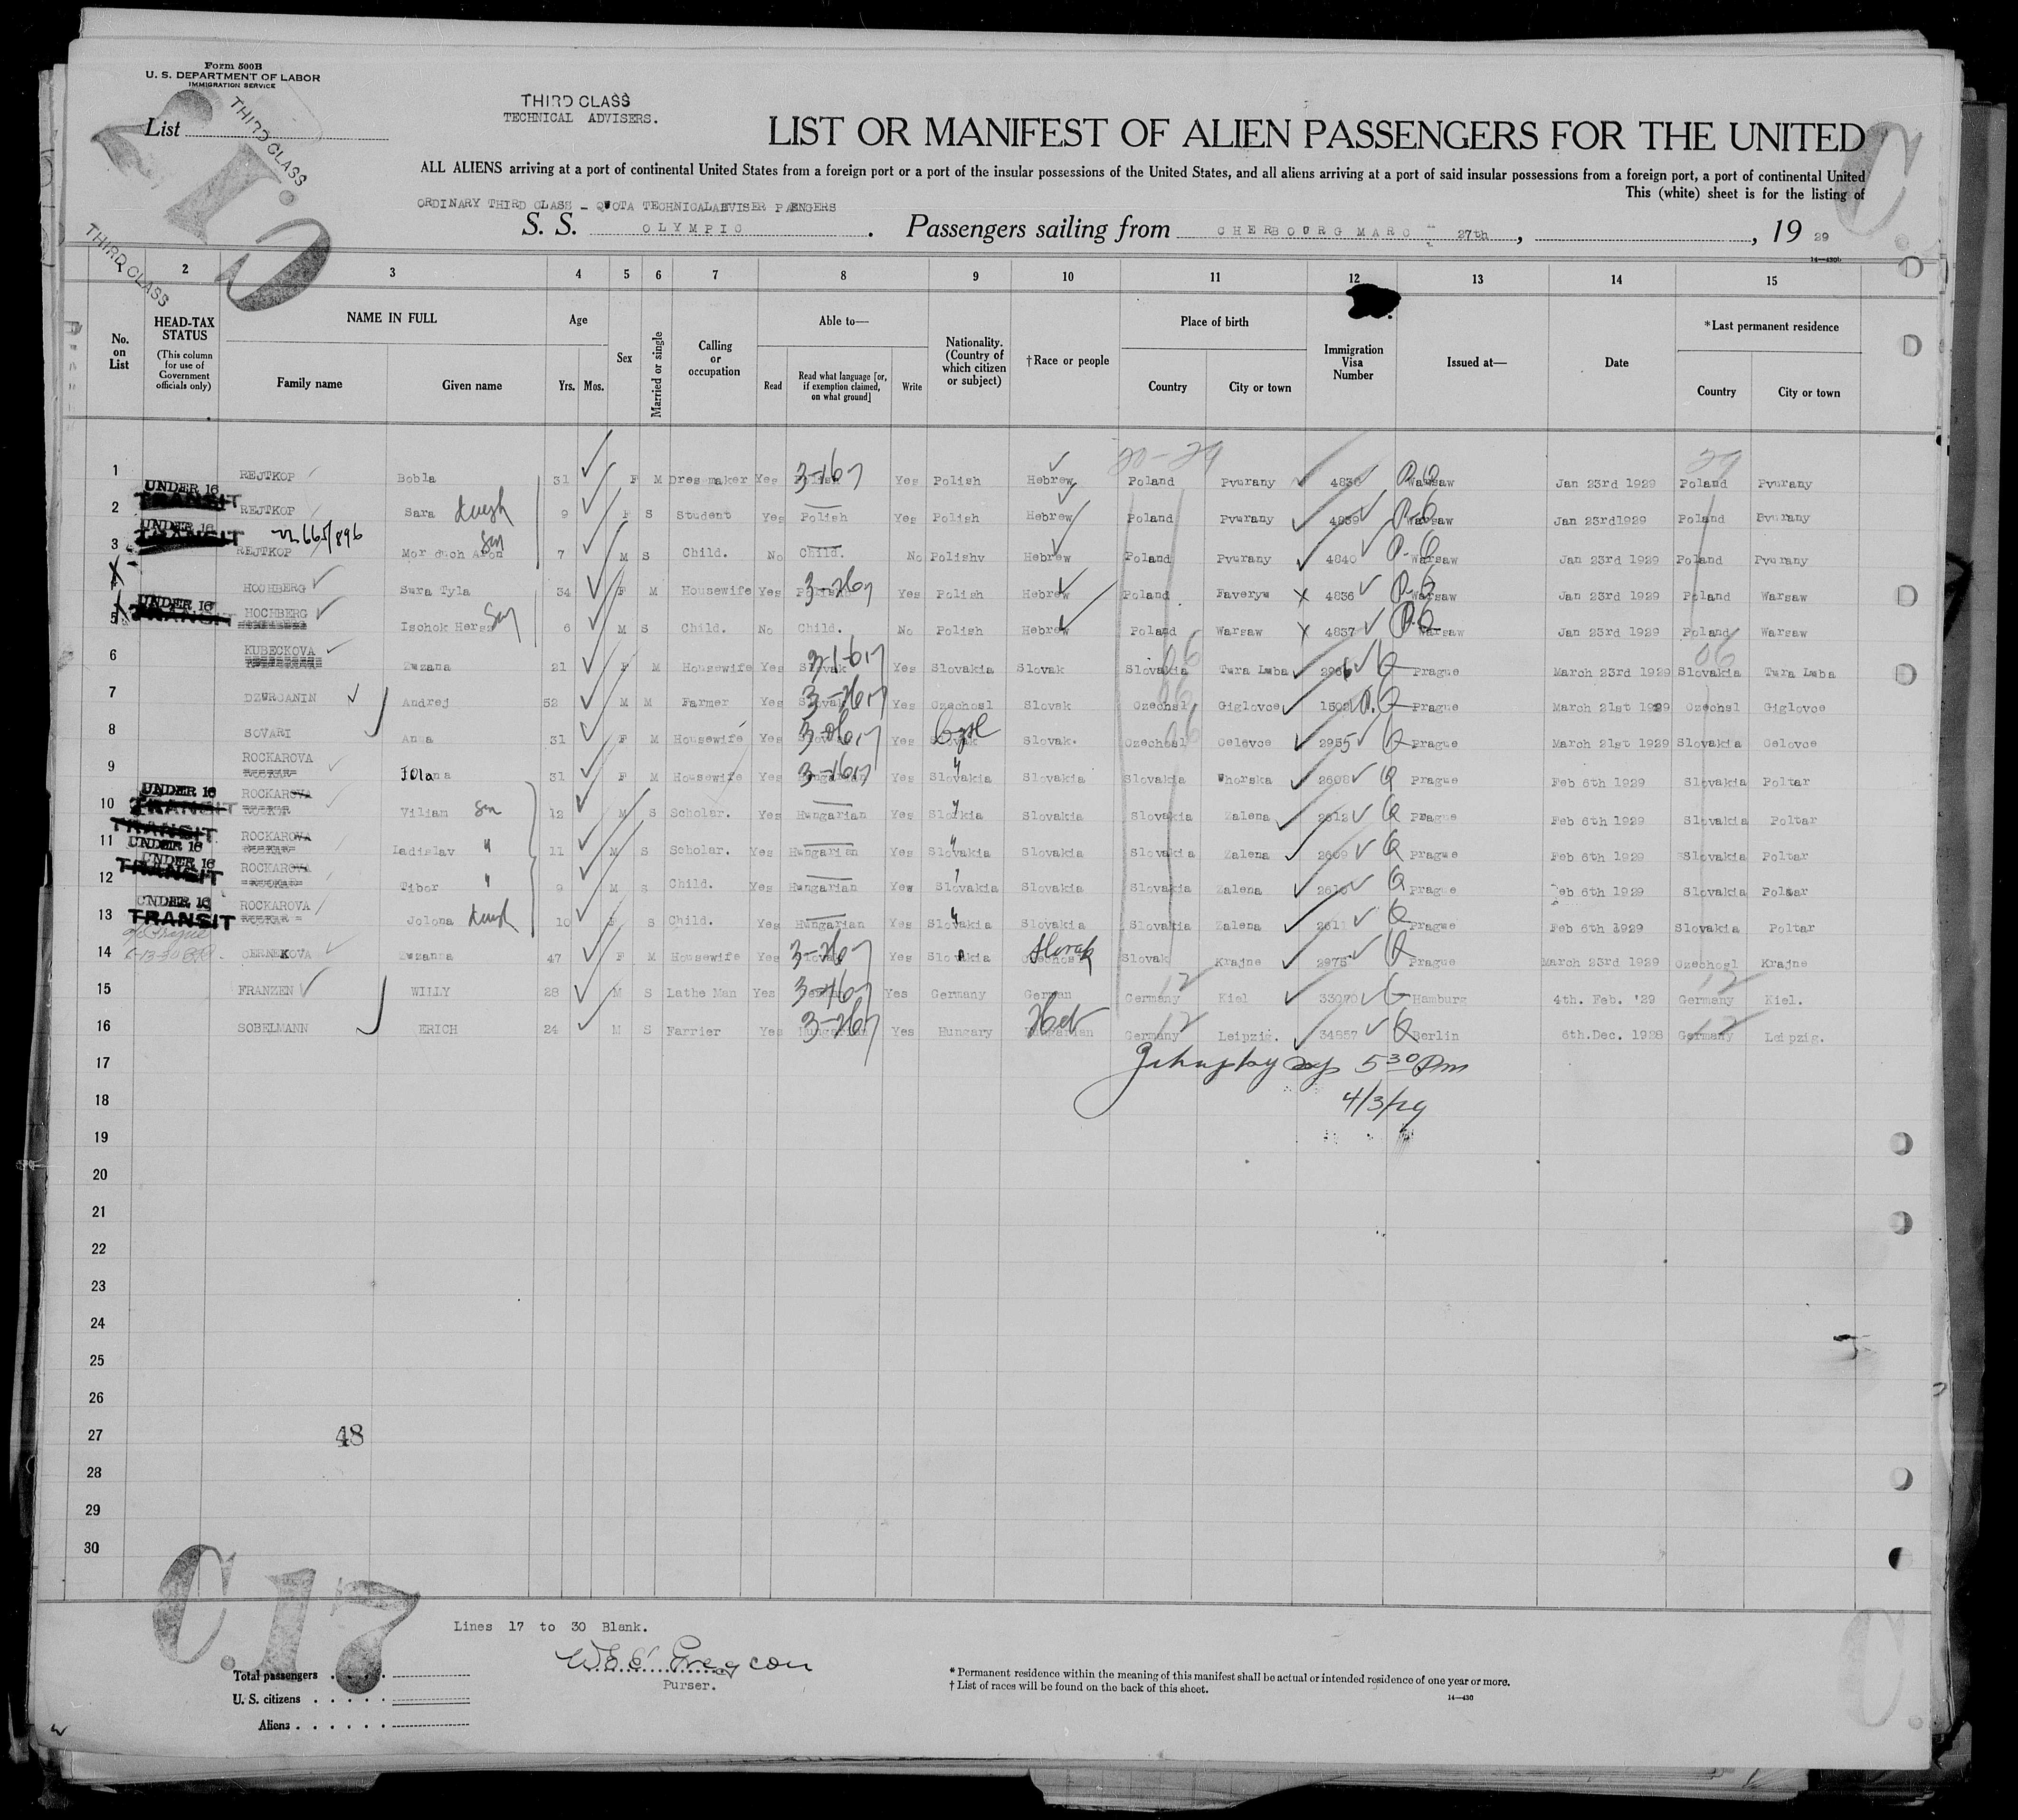 Form 500B
U. S. DEPARTMENT OF LABOR
IMMIGRATION SERVICE
THIRD CLASS
TECHNICAL ADVISERS.
List
THIRD CLASS
LIST OR MANIFEST OF ALIEN PASSENGERS FOR THE UNITED
ALL ALIENS arriving at a port of continental United States from a foreign port or a port of the insular possessions of the United States, and all aliens arriving at a port of said insular possessions from a foreign port, a port of continental United
This (white) sheet is for the listing of
ORDINARY THIRD CLASS - QUOTA TECHNICAL
S. S. OLYMPIC. Passengers sailing from CHERBOURG MARC 27th, , 19 29
14-430b
THIRD CLASS
2 3 4 5 6 7 8 9 10 11 12 13 14 15
No. on List
HEAD-TAX STATUS (This column for use of Government officials only)
NAME IN FULL
Family name Given name
Age
Yrs. Mos.
Sex
Married or single
Calling or occupation
Able to—
Read Read what language [or, if exemption claimed, on what ground] Write
Nationality. (Country of which citizen or subject)
†Race or people
Place of birth
Country City or town
Immigration Visa Number
Issued at—
Date
*Last permanent residence
Country City or town
1 REJTKOP Bobla 31 F M Dres maker Yes Polish Yes Polish Hebrew Poland Pvurany Warsaw Jan 23rd 1929 Poland Pvurany
2 UNDER 16 TRANSIT REJTKOP Sara daugh 9 F S Student Yes Polish Yes Polish Hebrew Poland Pvurany 4839 Warsaw Jan 23rd1929 Poland Bvurany
3 UNDER 16 TRANSIT REJTKOP Mor duch Aron son 7 M S Child. No Child. No Polishv Hebrew Poland Pvurany 4840 Warsaw Jan 23rd 1929 Poland Pvurany
4 HOCHBERG Sura Tyla 34 F M Housewife Yes Yes Polish Hebrew Poland Faveryw 4836 Warsaw Jan 23rd 1929 Poland Warsaw
5 UNDER 16 TRANSIT HOCHBERG Ischok Hersz 6 M S Child. No Child. No Polish Hebrew Poland Warsaw 4837 Warsaw Jan 23rd 1929 Poland Warsaw
6 KUBECKOVA Zuzana 21 F M Housewife Yes Slovak Yes Slovakia Slovak Slovakia Tura Luba Prague March 23rd 1929 Slovakia Tura Luba
7 DZURGANIN Andrej 52 M M Farmer Yes Slovak Yes Czechosl Slovak Czechsl Giglovce Prague March 21st 1929 Czechsl Giglovce
8 SOVARI Anna 31 F M Housewife Yes Yes Slovak. Czechosl Celovce 2955 Prague March 21st 1929 Slovakia Celovce
9 ROCKAROVA 31 F M Housewife Yes Hungarian Yes Slovakia Slovakia Slovakia Uhorska 2608 Prague Feb 6th 1929 Slovakia Poltar
10 UNDER 16 TRANSIT ROCKAROVA Viliam son 12 M S Scholar. Yes Hungarian Yes Slovakia Slovakia Slovakia Zalena 2612 Prague Feb 6th 1929 Slovakia Poltar
11 TRANSIT UNDER 16 ROCKAROVA Ladislav " 11 M S Scholar. Yes Hungarian Yes Slovakia Slovakia Slovakia Zalena 2609 Prague Feb 6th 1929 Slovakia Poltar
12 UNDER 16 TRANSIT ROCKAROVA Tibor " 9 M S Child. Yes Hungarian Yes Slovakia Slovakia Slovakia Zalena 2610 Prague Feb 6th 1929 Slovakia Poltar
13 UNDER 16 TRANSIT ROCKAROVA Jolona daugh 10 F S Child. Yes Hungarian Yes Slovakia Slovakia Slovakia Zalena 2611 Prague Feb 6th 1929 Slovakia Poltar
14 CERNEKOVA Zuzanna 47 F M Housewife Yes Yes Slovak Slovak Krajne 2975 Prague March 23rd 1929 Czechosl Krajne
15 FRANZEN WILLY 28 M S Lathe Man Yes Yes Germany German Germany Kiel 33070 Hamburg 4th. Feb. '29 Germany Kiel.
16 SOBELMANN ERICH 24 M S Farrier Yes Hungarian Yes Hungary Heb Germany Leipzig. 34857 Berlin 6th.Dec. 1928 Germany Leipzig.
17
5 30 Pm
18
4/3/29
19
20
21
22
23
24
25
26
27
48
28
29
30
C.17
Lines 17 to 30 Blank.
Purser.
Total passengers
U. S. citizens
Aliens
* Permanent residence within the meaning of this manifest shall be actual or intended residence of one year or more.
† List of races will be found on the back of this sheet.
14-430